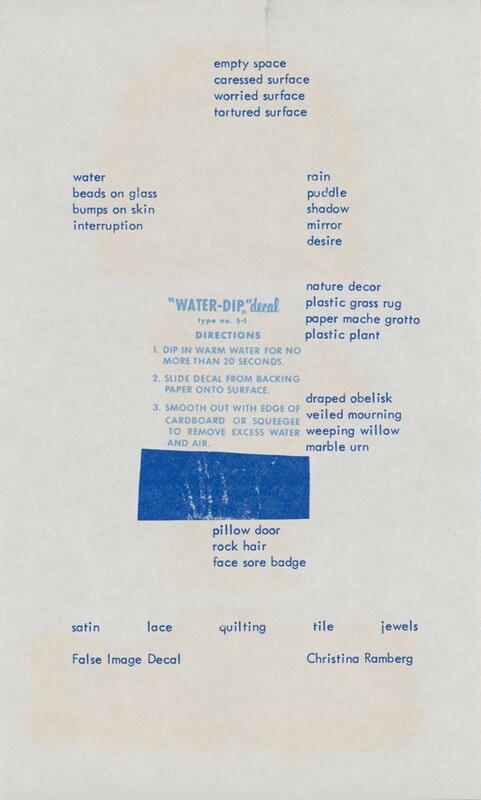 empty space
caressed surface
worried surface
tortured surface
water
beads on glass
bumps on skin
interruption
rain
puddle
shadow
mirror
desire
nature decor
plastic grass rug
paper mache grotto
plastic plant
"WATER-DIP"® decal
type no. 5-1
DIRECTIONS
1. DIP IN WARM WATER FOR NO
MORE THAN 20 SECONDS.
2. SLIDE DECAL FROM BACKING
PAPER ONTO SURFACE.
3. SMOOTH OUT WITH EDGE OF
CARDBOARD OR SQUEEGEE
TO REMOVE EXCESS WATER
AND AIR.
draped obelisk
veiled mourning
weeping willow
marble urn
pillow door
rock hair
face sore badge
satin lace quilting tile jewels
False Image Decal Christina Ramberg